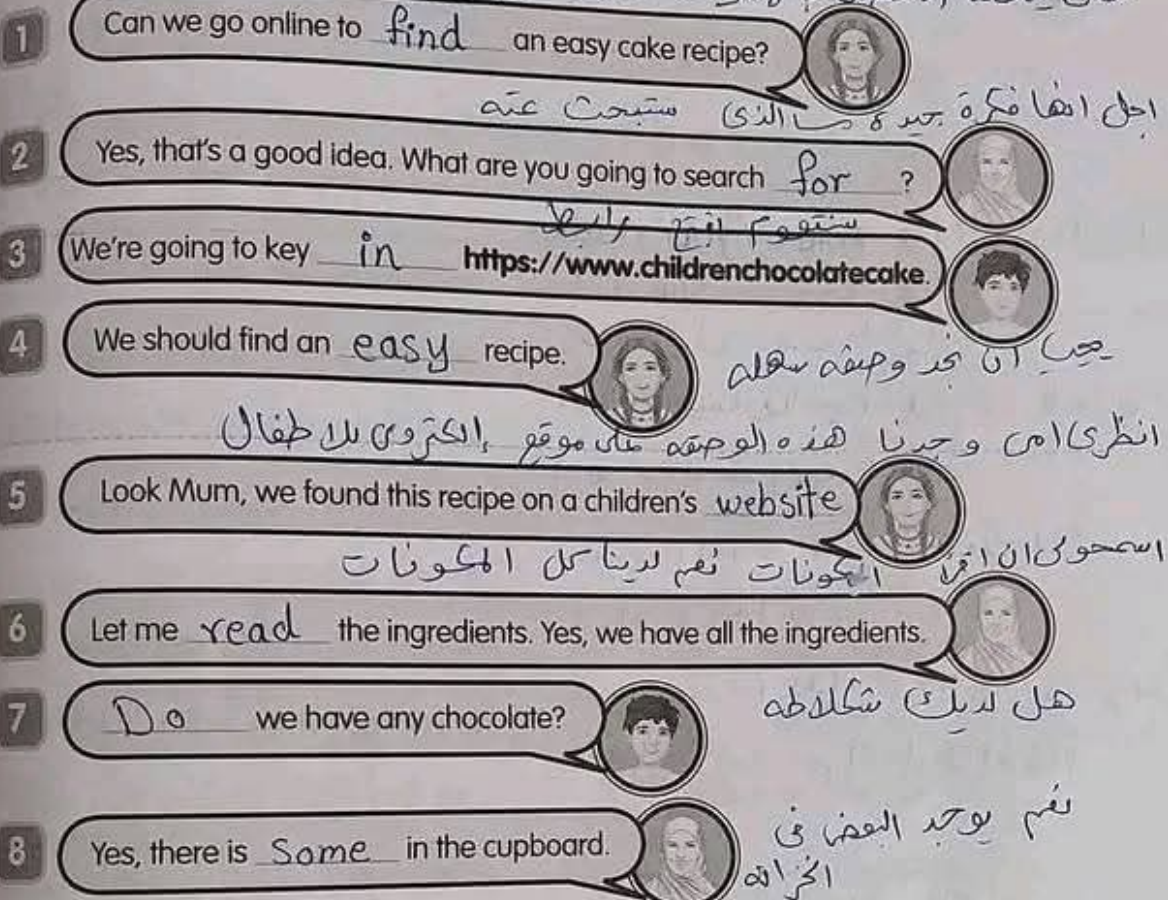 1 Can we go online to find an easy cake recipe?
اجل انها فكرة جيدة ما الذى ستبحث عنه
2 Yes, that's a good idea. What are you going to search for ?
سنقوم افتح رابط
3 We're going to key in https://www.childrenchocolatecake.
4 We should find an easy recipe.
يجب ان نجد وصفه سهله
انظرى امى وجدنا هذه الوصفه على موقع الكترونى للاطفال
5 Look Mum, we found this recipe on a children's website
اسمحولى ان اقرأ المكونات نعم لدينا كل المكونات
6 Let me read the ingredients. Yes, we have all the ingredients.
7 Do we have any chocolate?
هل لديك شكلاطه
8 Yes, there is Some in the cupboard.
نعم يوجد البعض فى
الخزانه